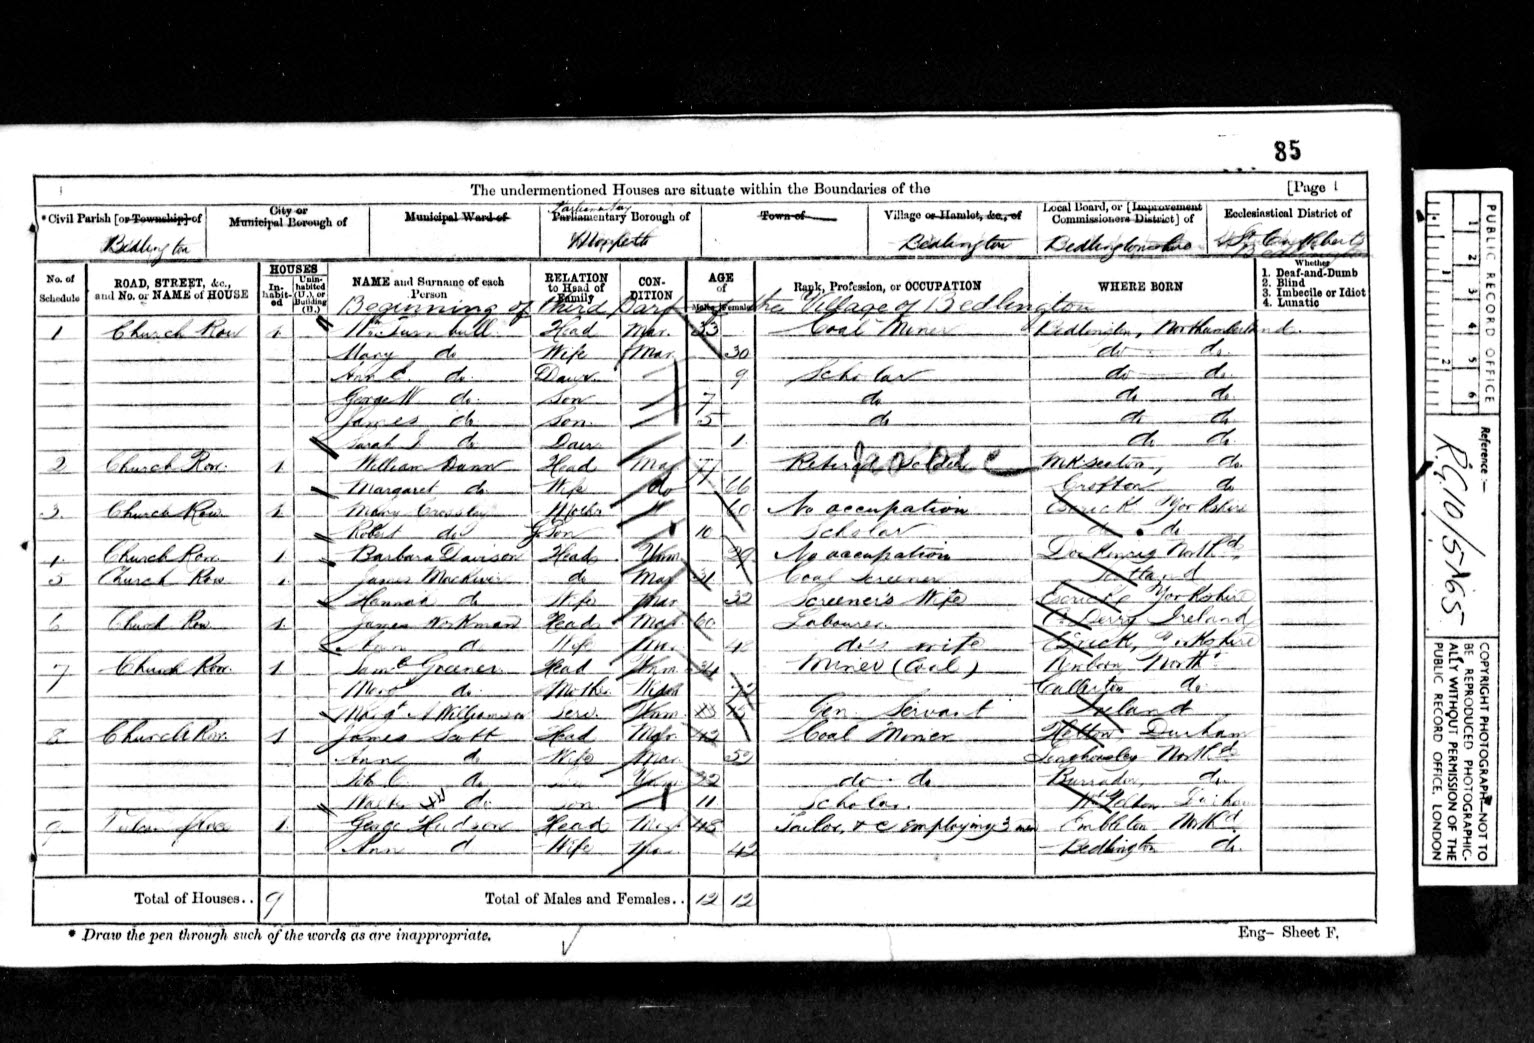 85
The undermentioned Houses are situate within the Boundaries of the
[Page 1
*Civil Parish [or Township] of
Bedlington
City or
Municipal Borough of
Municipal Ward of
Parliamentary
Parliamentary Borough of
Morpeth
Town of
Village or Hamlet, &c., of
Bedlington
Local Board, or [Improvement
Commissioners District] of
Bedlingtonshire
Ecclesiastical District of
St Cuthberts
Bedlington
No. of
Schedule
ROAD, STREET, &c.,
and No. or NAME of HOUSE
HOUSES
In-
habit-
ed
Unin-
habited
(U.), or
Building
(B.)
NAME and Surname of each
Person
RELATION
to Head of
Family
CON-
DITION
AGE
of
Males
Females
Rank, Profession, or OCCUPATION
WHERE BORN
Whether
1. Deaf-and-Dumb
2. Blind
3. Imbecile or Idiot
4. Lunatic
Beginning of Third Part of the Village of Bedlington
1 Church Row 1 Wm Turnbull Head Mar. 33 Coal Miner Bedlington, Northumberland
Mary do Wife Mar. 30 do do
Ann do Daur 9 Scholar do do
George W do Son 7 do do do
James do Son 5 do do do
Sarah J do Daur 1 do do
2 Church Row 1 William Dann Head Mar 71 Retired do
Margaret do Wife do 66 Crofton do
3 Church Row 1 Mary Crossley 60 No occupation Escrick Yorkshire
Robert do G. Son 10 Scholar do do
4 Church Row 1 Barbara Davison Head Unm 39 No occupation North'd
5 Church Row 1 James do Mar 31 Coal Screener Scotland
Hannah do Wife Mar 32 Screener's Wife Escrick Yorkshire
6 Church Row 1 James Workman Head Mar 60 Labourer Ireland
Ann do Wife Mar 48 do's wife Escrick, Yorkshire
7 Church Row 1 Saml Greener Head Unm 34 Miner (Coal) Newburn North'd
Mary do Mother Widow 72 Callerton do
Margt A Williamson Serv. Unm. 13 Gen. Servant Ireland
8 Church Row 1 James Scott Head Mar. Coal Miner Hetton Durham
Ann do Wife Mar North'd
do Unm 22 do do do
do son 11 Scholar Durham
9 1 George Hudson Head Mar 43 Tailor, &c employing 3 men Embleton North'd
Ann do Wife 42 Bedlington do
Total of Houses.. 9
Total of Males and Females.. 12 12
* Draw the pen through such of the words as are inappropriate.
Eng— Sheet F.
PUBLIC RECORD OFFICE
1 2 3 4 5 6
1 2
Reference:—
R.G.10/5165
COPYRIGHT PHOTOGRAPH—NOT TO
BE REPRODUCED PHOTOGRAPHIC-
ALLY WITHOUT PERMISSION OF THE
PUBLIC RECORD OFFICE, LONDON